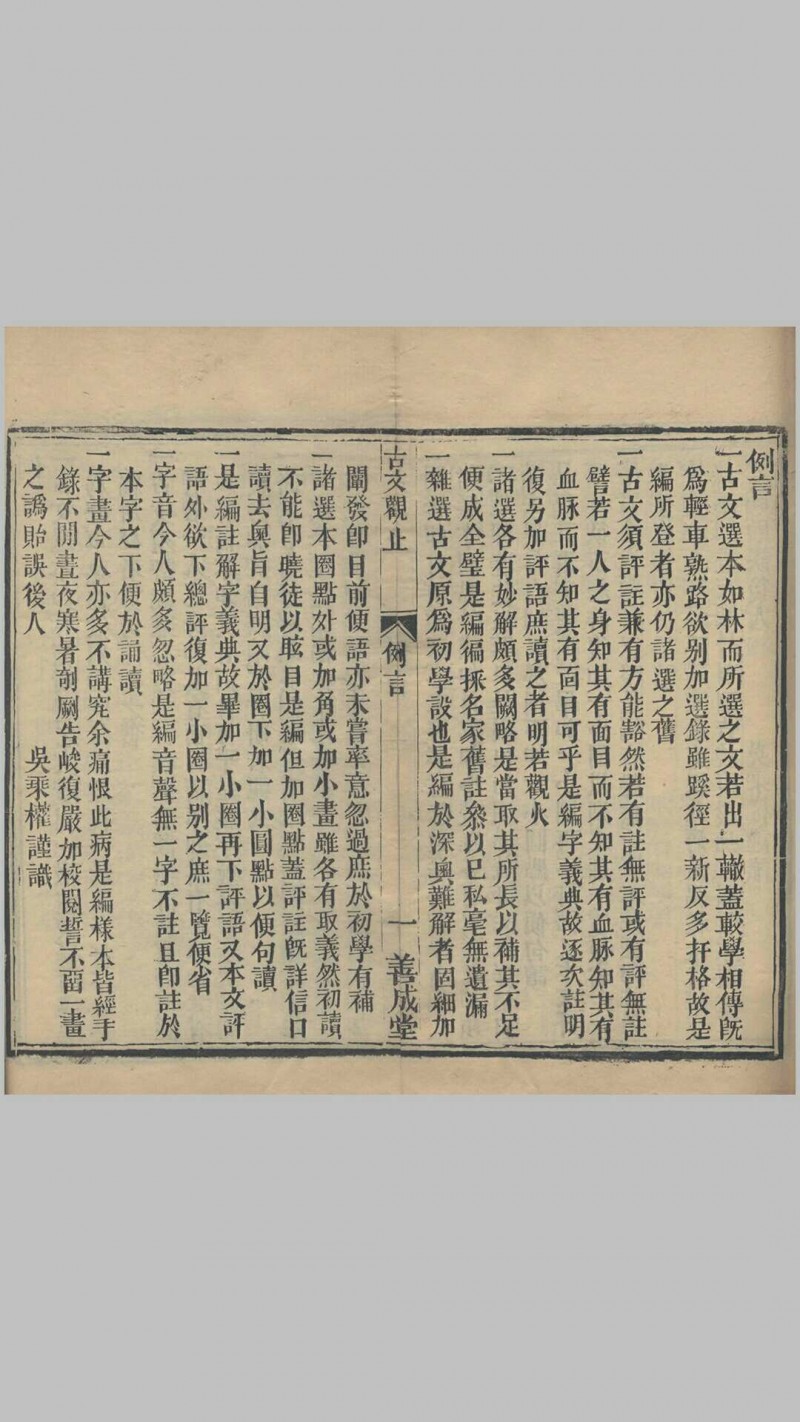 例言
一古文選本如林而所選之文若出一轍蓋較學相傳旣
爲輕車熟路欲別加選錄雖蹊徑一新反多扞格故是
編所登者亦仍諸選之舊
一古文須評註兼有方能豁然若有註無評或有評無註
譬若一人之身知其有面目而不知其有血脉知其有
血脉而不知其有面目可乎是編字義典故逐次註明
復另加評語庶讀之者明若觀火
一諸選各有妙解頗多闕略是當取其所長以補其不足
便成全璧是編徧採名家舊註叅以已私毫無遺漏
一雜選古文原爲初學設也是編於深奥難解者固細加
古文觀止 例言 一 善成堂
闡發卽目前便語亦未嘗率意忽過庶於初學有補
一諸選本圈點外或加角或加小畫雖各有取義然初讀
不能卽曉徒以眩目是編但加圈點蓋評註旣詳信口
讀去奥旨自明又於圈下加一小圓點以便句讀
一是編註解字義典故畢加一小圈再下評語又本文評
語外欲下總評復加一小圈以别之庶一覽便省
一字音今人頗多忽略是編音聲無一字不註且卽註於
本字之下便於誦讀
一字畫今人亦多不講究余痛恨此病是編樣本皆經手
錄不閒晝夜寒暑剞劂告峻復嚴加校閱誓不畱一畫
之譌貽誤後人
吳乘權謹識